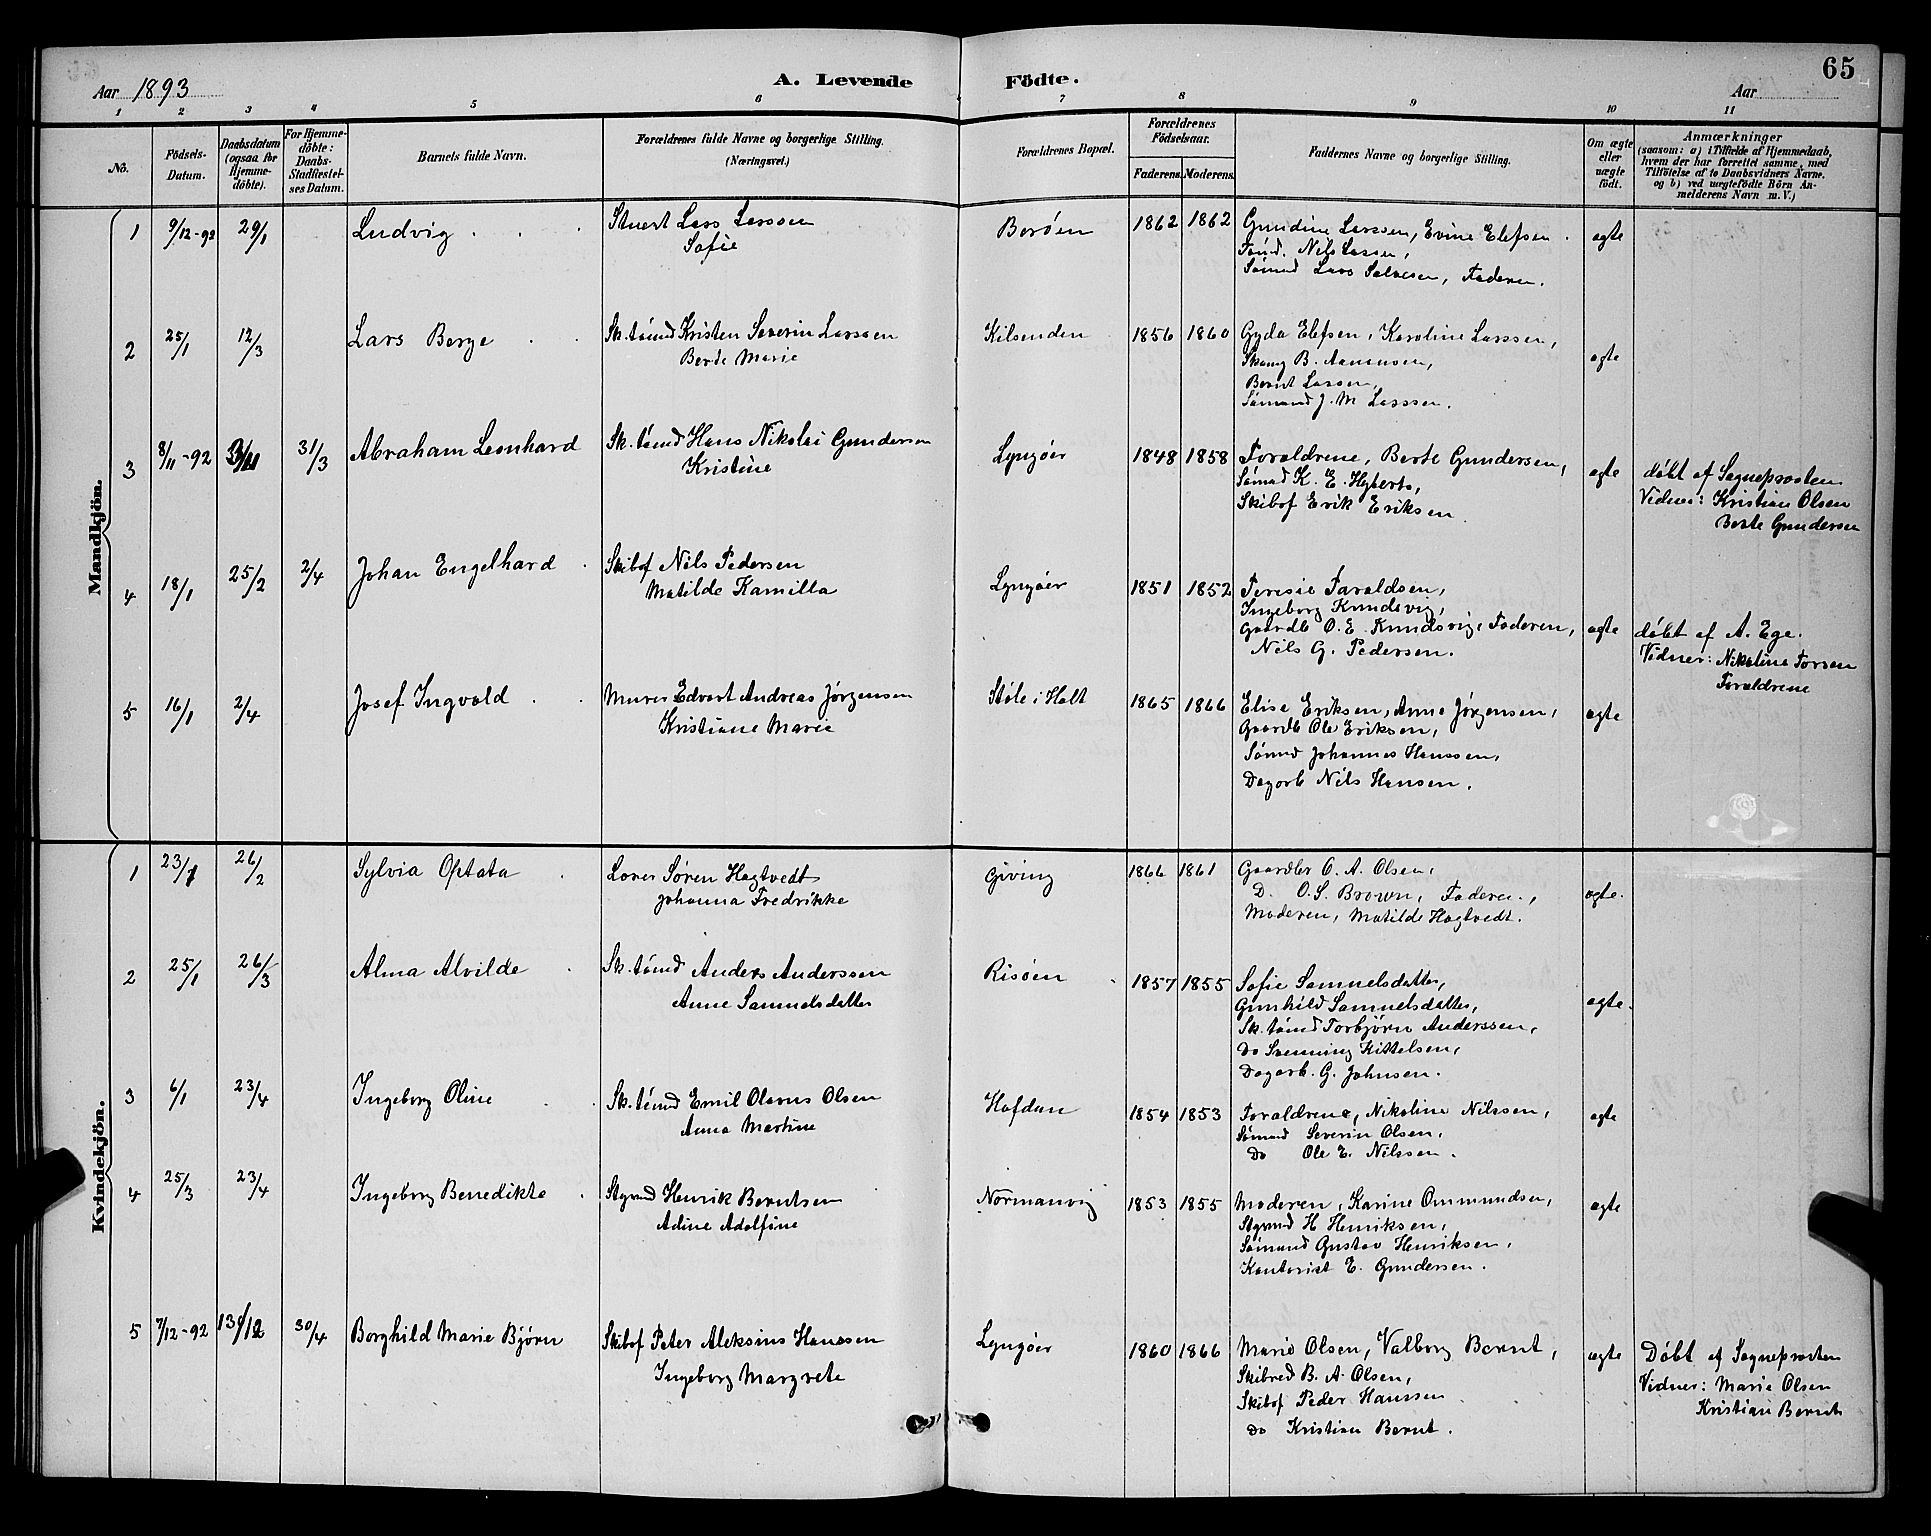 65
Aar 1893
A. Levende Födte.
Aar
1 2 3 4 5 6 7 8 9 10 11
No.
Födsels-Datum.
Daabsdatum (ogsaa for Hjemmedöbte).
For Hjemmedöbte: Daabs-Stadfæstelses Datum.
Barnets fulde Navn.
Forældrenes fulde Navne og borgerlige Stilling. (Næringsvei.)
Forældrenes Bopæl.
Forældrenes Födselsaar.
Faderens. Moderens.
Faddernes Navne og borgerlige Stilling.
Om ægte eller uægte födt.
Anmærkninger
(saasom: a) i Tilfælde af Hjemmedaab, hvem der har forrettet samme, med Tilföielse af to Daabsvidners Navne, og b) ved uægtefödte Börn Anmelderens Navn m. V.)
Mandkjön.
1 9/12-92 29/1 Ludvig Stuert Lars Larssen Borøen 1862 1862 Gundine Larssen, Evine Elefsen. ægte
Sofie
Tømd. Nils Larssen,
Sømand Lars Salvesen, Faderen.
2 25/1 12/3 Lars Berge Sk.tømd Kristen Severin Larssen Kilsenden 1856 1860 Gyda Elefsen, Karoline Larssen, ægte
Berte Marie
B. Aanensen,
Bernt Larssen,
Sømand J. M Larssen.
3 8/11-92 31/3 Abraham Leonhard Sk.tømd Hans Nikolai Gundersen Lyngøer 1848 1858 Forældrene, Berte Gundersen, ægte
Kristine
Sømand K. E. Hyberts,
Skibsf Erik Eriksen
døbt af Sogneprosten
Vidner: Kristian Olsen
Berte Gundersen
4 18/1 25/2 2/4 Johan Engelhard Skibsf Nils Pedersen Lyngøer 1851 1852 Teresie Taraldsen, ægte
Matilde Kamilla
Ingeborg Knudsvig,
Gaardb O. E. Knudsvig, Faderen,
Nils G. Pedersen.
døbt af A. Ege.
Vidner: Nikoline Torsen
Forældrene
5 16/1 2/4 Josef Ingvald Murer Edvart Andreas Jørgensen Støle i Holt 1865 1866 Elise Eriksen, Anne Jørgensen, ægte
Kristiane Marie
Gaardb Ole Eriksen,
Sømd Johannes Hanssen,
Dagarb Nils Hansen.
Kvindekjön.
1 23/1 26/2 Sylvia Optata Søren Hagtvedt Giving 1866 1861 Gaardbr O. A. Olsen, ægte.
Johanna Fredrikke
D. O. S. Brown, Faderen,
Moderen, Matilde Hagtvedt.
2 25/1 26/3 Alma Alvilde Sk.tømd Anders Anderssen Risøen 1857 1855 Sofie Samuelsdatter, ægte.
Anne Samuelsdatter
Gunhild Samuelsdatter,
Sk.tømd Torbjørn Anderssen,
Do Svenning Kittelsen,
Dagarb. G. Johnsen.
3 6/1 23/4 Ingeborg Oline Sk.tømd Emil Olavus Olsen Hafdan 1854 1853 Forældrene, Nikoline Nilssen, ægte
Anna Martine
Sømand Severin Olsen,
Do Ole E. Nilssen.
4 25/3 23/4 Ingeborg Benedikte Stymd Henrik Berntsen Normanvig 1853 1855 Moderen, Karine Ommundsen, ægte
Adine Adolfine
Stymd H Henriksen,
Sømand Gustav Henriksen,
Kontorist E. Gundersen.
5 7/12-92 30/4 Borghild Marie Bjørn Skibsf Peter Aleksius Hanssen Lyngøer 1860 1866 Marie Olsen, Valborg Bernt, ægte
Ingeborg Margrete
Skibred B. A. Olsen,
Skibsf Peder Hanssen
Do Kristian Bernt.
Døbt af Sogneprosten
Vidner: Marie Olsen
Kristian Bernt